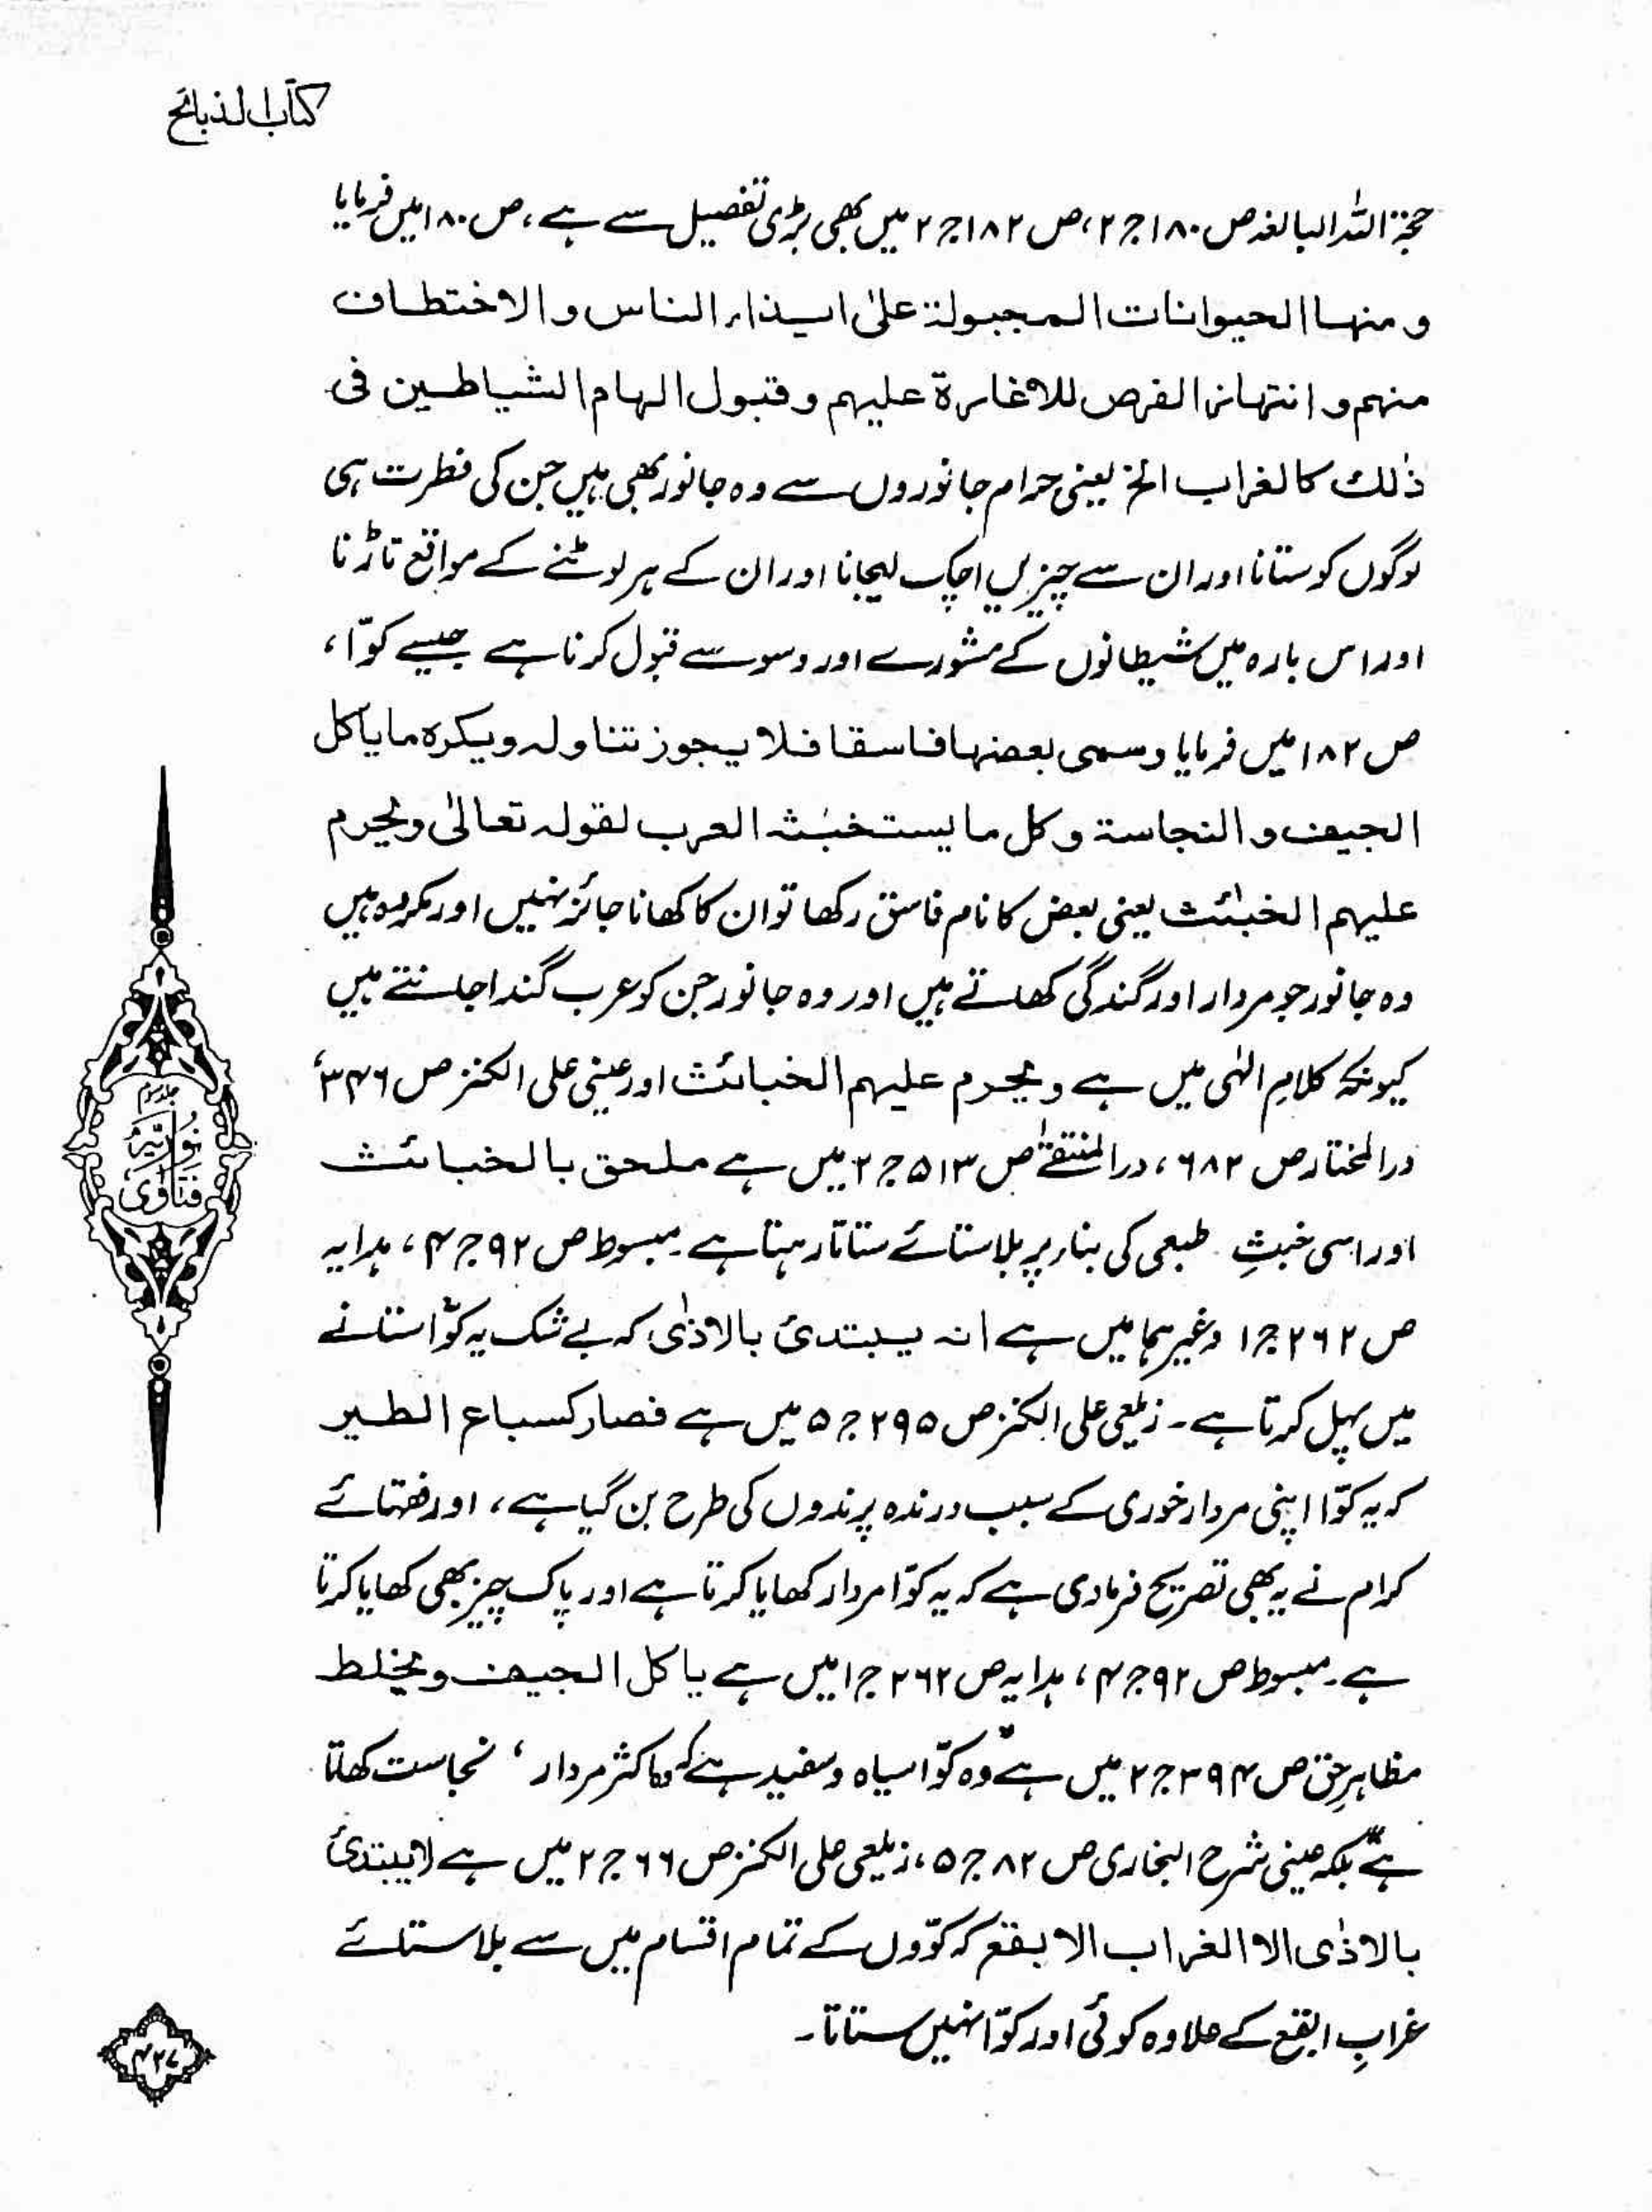 کتاب الذبائح
حجۃ اللہ البالغہ ص ۱۸۰ ج ۲، ص ۱۸۲ ج ۲ میں بھی بڑی تفصیل سے ہے، ص ۱۸۰ میں فرمایا
و منہا الحیوانات المجبولۃ علیٰ ایذاء الناس و الاختطاف
منہم و انتہاز الفرص للاغارۃ علیہم و قبول الہام الشیاطین فی
ذٰلک کالغراب الخ یعنی حرام جانوروں سے وہ جانور بھی ہیں جن کی فطرت ہی
لوگوں کو ستانا اور ان سے چیزیں اچک لیجانا اور ان کے ہر لوٹنے کے مواقع تاڑنا
اور اس بارہ میں شیطانوں کے مشورے اور وسوسے قبول کرنا ہے جیسے کوّا،
ص ۱۸۲ میں فرمایا وسمی بعضہا فاسقا فلا یجوز تناولہ ویکرہ ما یاکل
الجیف و النجاسۃ و کل ما یستخبثہ العرب لقولہ تعالیٰ ویحرم
علیہم الخبٰئث یعنی بعض کا نام فاسق رکھا تو ان کا کھانا جائز نہیں اور مکروہ ہیں
وہ جانور جو مردار اور گندگی کھاتے ہیں اور وہ جانور جن کو عرب گندا جانتے ہیں
کیونکہ کلامِ الٰہی میں ہے ویحرم علیہم الخبائث اور عینی علی الکنز ص ۳۴۶،
درالمختار ص ۶۸۲، درالمنتقےٰ ص ۵۱۳ ج ۲ میں ہے ملحق بالخبائث
اور اسی خبثِ طبعی کی بنا پر بلا ستائے ستاتا رہتا ہے۔ مبسوط ص ۹۲ ج ۴، ہدایہ
ص ۲۶۲ ج ۱ وغیرہما میں ہے انہ یبتدئ بالاذٰی کہ بے شک یہ کوّا ستانے
میں پہل کرتا ہے۔ زیلعی علی الکنز ص ۲۹۵ ج ۵ میں ہے فصار کسباع الطیر
کہ یہ کوّا اپنی مردار خوری کے سبب درندہ پرندوں کی طرح بن گیا ہے، اور فقہائے
کرام نے یہ بھی تصریح فرمادی ہے کہ یہ کوّا مردار کھایا کرتا ہے اور پاک چیز بھی کھایا کرتا
ہے۔ مبسوط ص ۹۲ ج ۴، ہدایہ ص ۲۶۲ ج ۱ میں ہے یاکل الجیف ویخلط
مظاہرِ حق ص ۳۹۴ ج ۲ میں ہے "وہ کوّا سیاہ و سفید ہے کہ اکثر مردار، نجاست کھاتا
ہے" بلکہ عینی شرح البخاری ص ۸۲ ج ۵، زیلعی علی الکنز ص ۶۶ ج ۲ میں ہے لا یبتدئ
بالاذٰی الا الغراب الابقع کہ کوّوں کے تمام اقسام میں سے بلا ستائے
غرابِ ابقع کے علاوہ کوئی اور کوّا نہیں ستاتا۔
نُوریّہ
فتاوٰی
۴۲۷